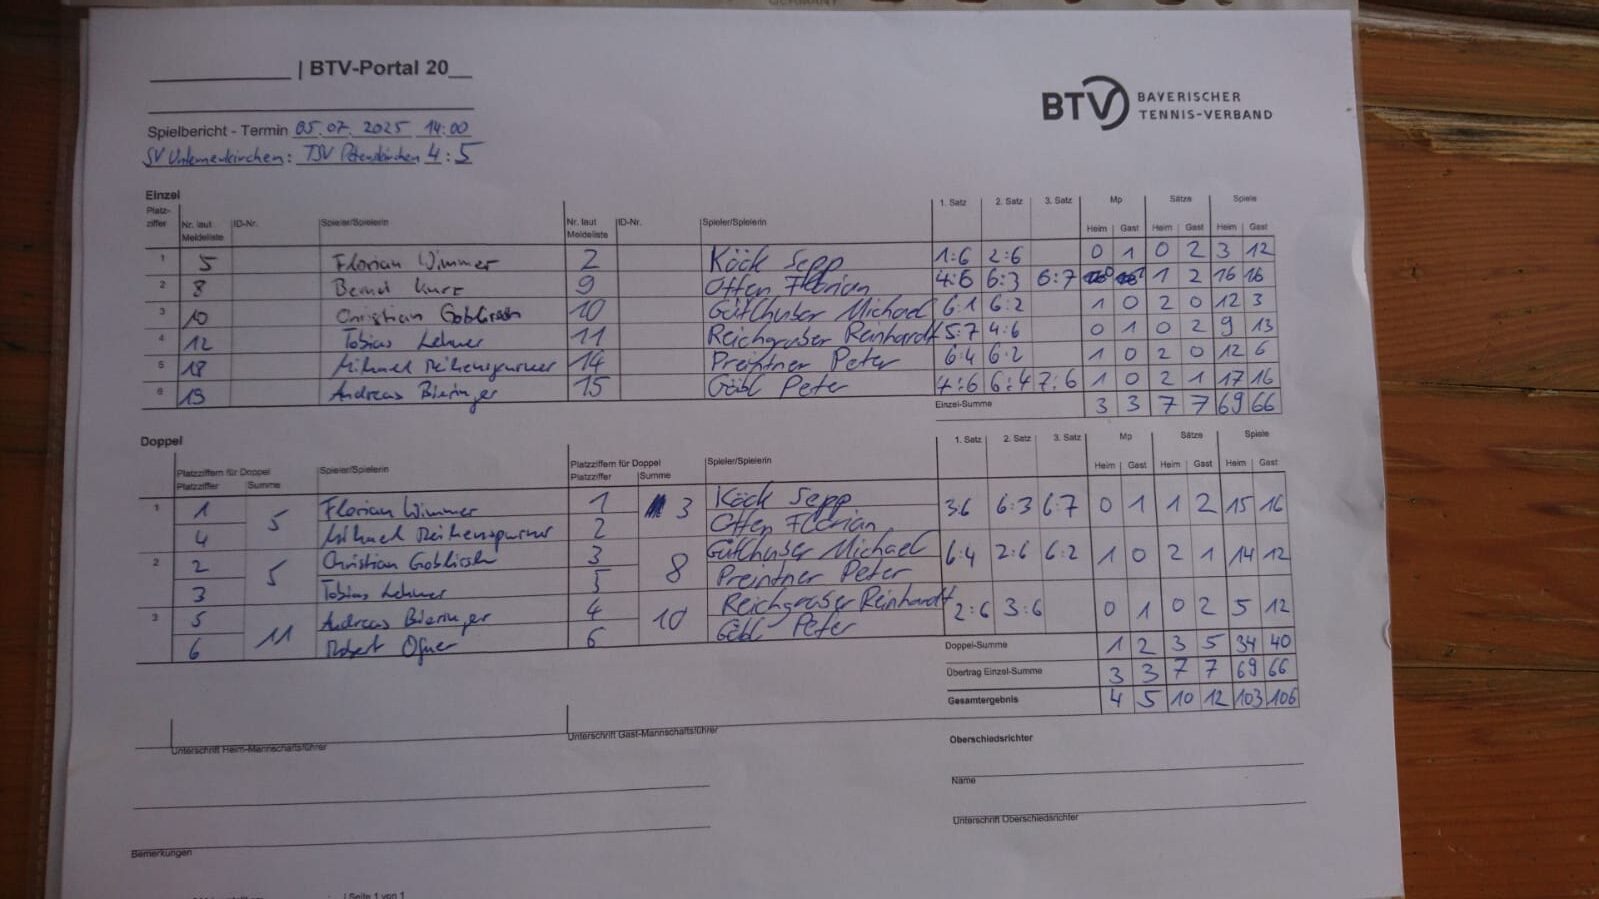 GERMANY
| BTV-Portal 20__
BTV BAYERISCHER
TENNIS-VERBAND
Spielbericht - Termin 05.07.2025 14:00
SV Unterneukirchen : TSV Peterskirchen 4:5
Einzel
Platz-ziffer Nr. laut Meldeliste ID-Nr. Spieler/Spielerin Nr. laut Meldeliste ID-Nr. Spieler/Spielerin 1. Satz 2. Satz 3. Satz Mp Sätze Spiele
Heim Gast Heim Gast Heim Gast
1 5 Florian Wimmer 2 Köck Sepp 1:6 2:6 0 1 0 2 3 12
2 8 Bernd Kurz 9 Offen Florian 4:6 6:3 6:7 1 2 16 16
3 10 Christian Goblirsch 10 Gütlhuber Michael 6:1 6:2 1 0 2 0 12 3
4 12 Tobias Lehner 11 Reichgruber Reinhardt 5:7 4:6 0 1 0 2 9 13
5 18 Mihael Reihenspurner 14 Preintner Peter 6:4 6:2 1 0 2 0 12 6
6 19 Andreas Bieringer 15 Göbl Peter 4:6 6:4 7:6 1 0 2 1 17 16
Einzel-Summe 3 3 7 7 69 66
Doppel
Platzziffern für Doppel Spieler/Spielerin Platzziffern für Doppel Spieler/Spielerin 1. Satz 2. Satz 3. Satz Mp Sätze Spiele
Platzziffer Summe Platzziffer Summe Heim Gast Heim Gast Heim Gast
1 1 5 Florian Wimmer 1 3 Köck Sepp 3:6 6:3 6:7 0 1 1 2 15 16
4 Mihael Reihenspurner 2 Offen Florian
2 2 5 Christian Goblirsch 3 8 Gütlhuber Michael 6:4 2:6 6:2 1 0 2 1 14 12
3 Tobias Lehner 5 Preintner Peter
3 5 11 Andreas Bieringer 4 10 Reichgruber Reinhardt 2:6 3:6 0 1 0 2 5 12
6 Robert Ofner 6 Göbl Peter
Doppel-Summe 1 2 3 5 34 40
Übertrag Einzel-Summe 3 3 7 7 69 66
Gesamtergebnis 4 5 10 12 103 106
Unterschrift Heim-Mannschaftsführer Unterschrift Gast-Mannschaftsführer
Oberschiedsrichter
Name
Unterschrift Oberschiedsrichter
Bemerkungen
| Seite 1 von 1